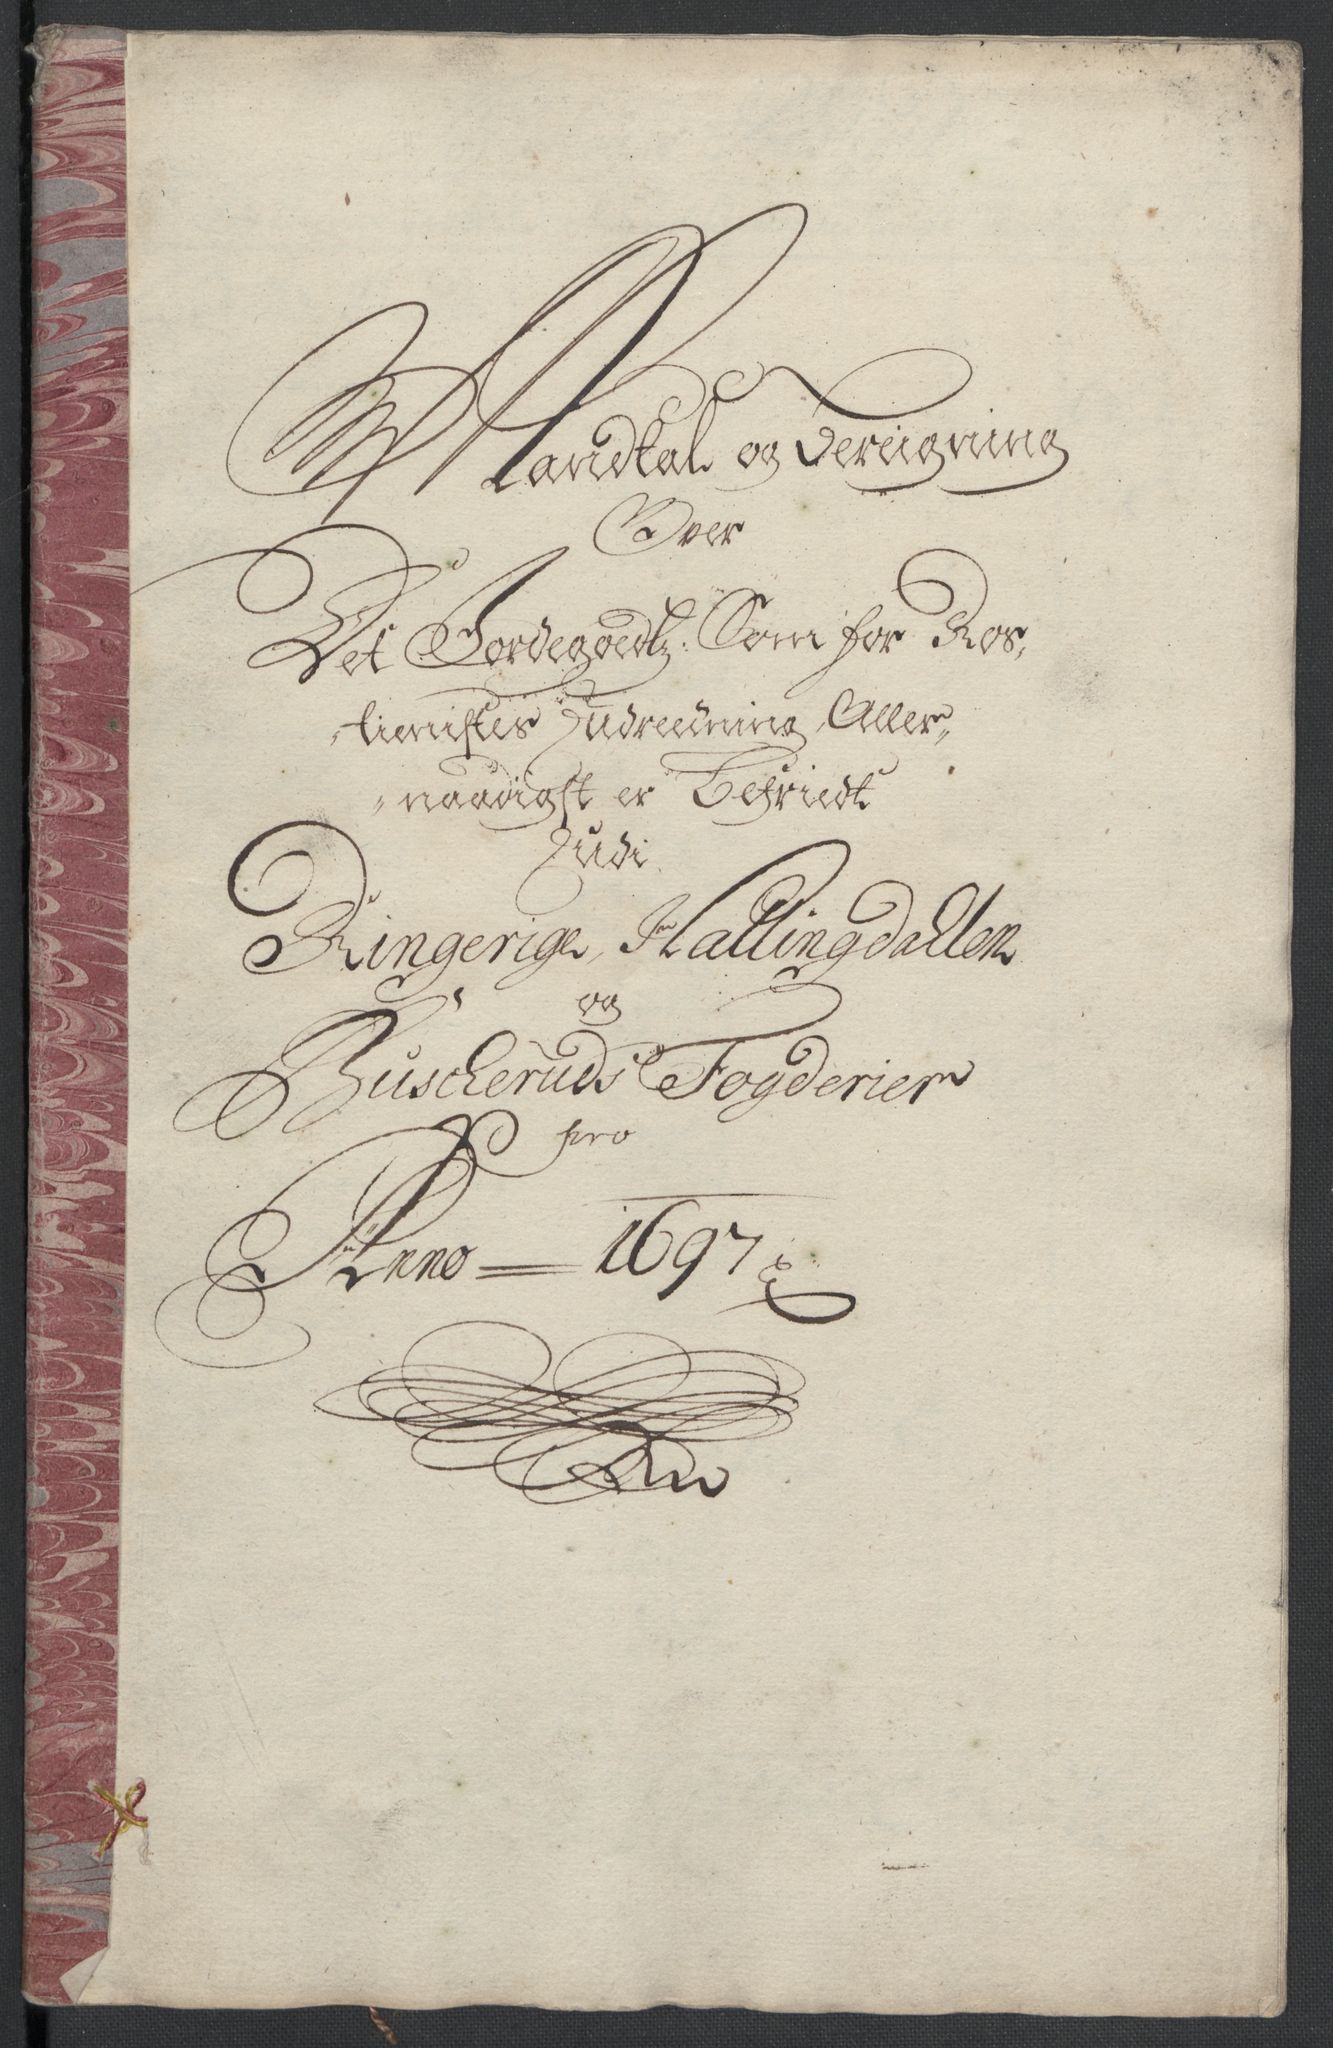 Mandtal og Beregning
Over
Det Jordegodtz Som for Ros,
tienistes Udreedning Aller„
„naadigst er Befriedt
Udi
Ringerige, Hallingdallen
og
Buscheruds Fogderier
pro
Anno = 1697